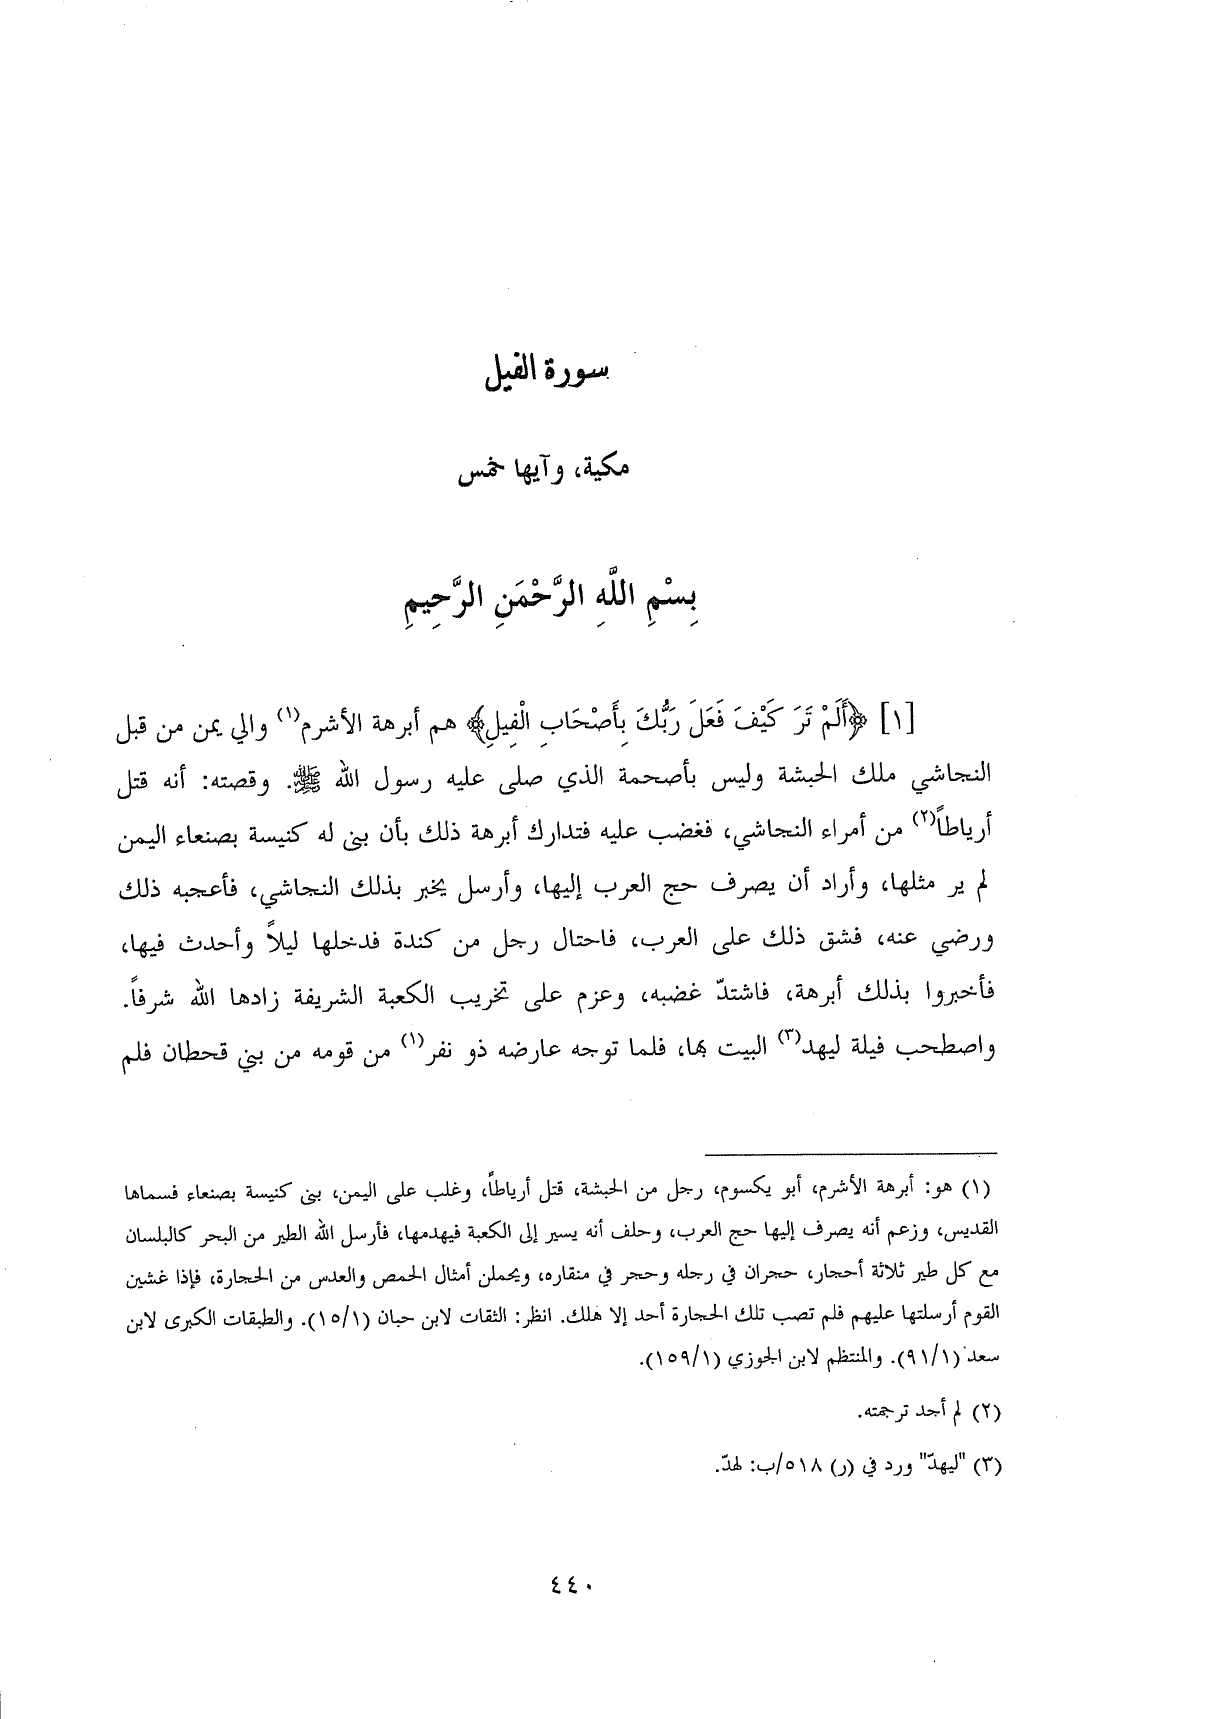 سورة الفيل
مكية، وآيها خمس
بِسْمِ اللَّهِ الرَّحْمَنِ الرَّحِيمِ
[١] ﴿أَلَمْ تَرَ كَيْفَ فَعَلَ رَبُّكَ بِأَصْحَابِ الْفِيلِ﴾ هم أبرهة الأشرم(١) والي يمن من قبل
النجاشي ملك الحبشة وليس بأصحمة الذي صلى عليه رسول الله ﷺ. وقصته: أنه قتل
أرياطاً(٢) من أمراء النجاشي، فغضب عليه فتدارك أبرهة ذلك بأن بنى له كنيسة بصنعاء اليمن
لم ير مثلها، وأراد أن يصرف حج العرب إليها، وأرسل يخبر بذلك النجاشي، فأعجبه ذلك
ورضي عنه، فشق ذلك على العرب، فاحتال رجل من كندة فدخلها ليلاً وأحدث فيها،
فأخبروا بذلك أبرهة، فاشتدّ غضبه، وعزم على تخريب الكعبة الشريفة زادها الله شرفاً.
واصطحب فيلة ليهد(٣) البيت بها، فلما توجه عارضه ذو نفر(١) من قومه من بني قحطان فلم
(١) هو: أبرهة الأشرم، أبو يكسوم، رجل من الحبشة، قتل أرياطاً، وغلب على اليمن، بنى كنيسة بصنعاء فسماها
القديس، وزعم أنه يصرف إليها حج العرب، وحلف أنه يسير إلى الكعبة فيهدمها، فأرسل الله الطير من البحر كالبلسان
مع كل طير ثلاثة أحجار، حجران في رجله وحجر في منقاره، ويحملن أمثال الحمص والعدس من الحجارة، فإذا غشين
القوم أرسلتها عليهم فلم تصب تلك الحجارة أحد إلا هلك. انظر: الثقات لابن حبان (١٥/١). والطبقات الكبرى لابن
سعد (٩١/١). والمنتظم لابن الجوزي (١٥٩/١).
(٢) لم أجد ترجمته.
(٣) "ليهدّ" ورد في (ر) ٥١٨/ب: لهدّ.
٤٤٠